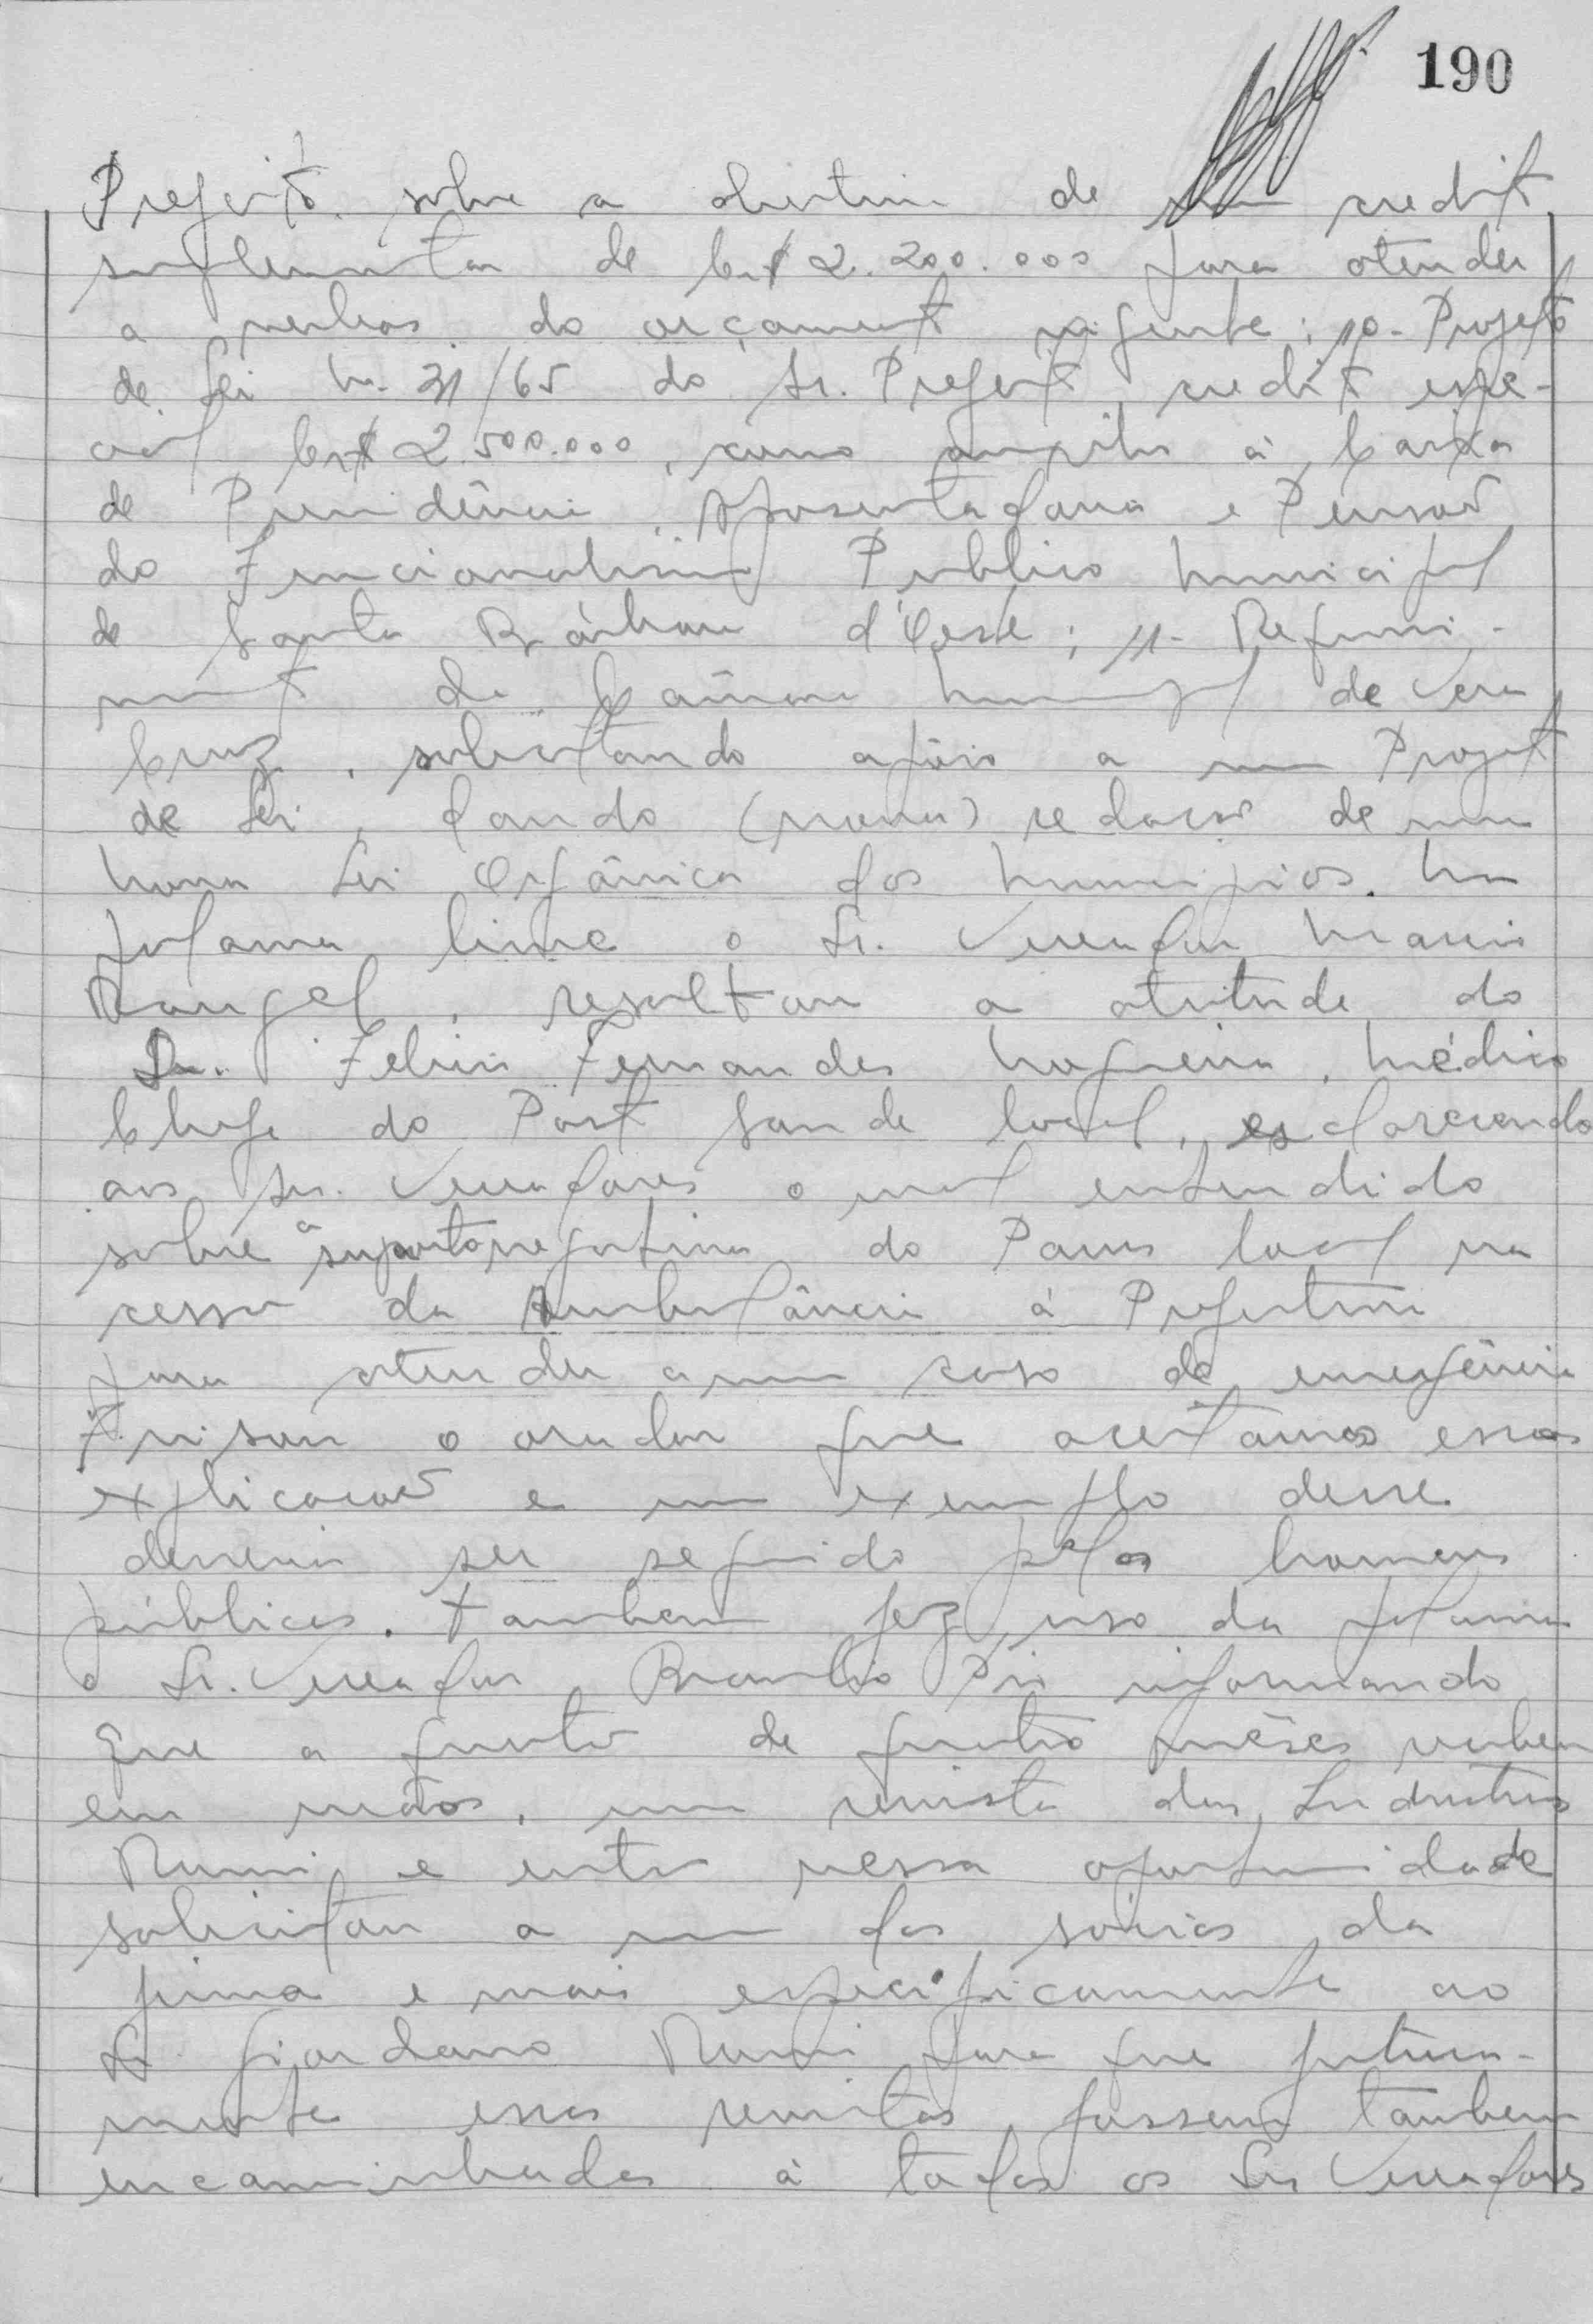 190
Prefeito sobre a abertura de um credito
suplementar de Cr$ 2.200.000 para atender
a verbas do orçamento vigente; 10- Projeto
de Lei n. 31/65 do Sr. Prefeito, credito espe-
cial Cr$ 2.500.000, como auxilio à Caixa
de Previdência, Aposentadoria e Pensões
do Funcionalismo Publico Municipal
de Santa Bárbara d'Oeste; 11- Requeri-
mento da Câmara Municipal de Vera
Cruz, solicitando apôio a um Projeto
de Lei, dando (nova) redação de uma
Nova Lei Orgânica dos Municipios. Na
palavra livre o Sr. Vereador Mario
Rangel, resaltou a atitude do
Dr. Felicio Fernandes Nogueira, Médico
Chefe do Posto Saude local, esclarecendo
aos Srs. Vereadores o mal entendido
sobre a suposta negativa do Pams local na
cessão da Ambulância à Prefeitura
para atender a um caso de emergência
Frisou o orador que aceitamos essas
explicações e um exemplo desse
deveria ser seguido pelos homens
públicos. Tambem fez uso da palavra
o Sr. Vereador Braulio Pio informando
que a questão de quatro mêses recebeu
em mãos, uma revista das Industrias
Romi e então nessa oportunidade
solicitou a um dos sócios da
firma e mais especificamente ao
Sr Giordano Romi para que futura-
mente essas revistas fossem tambem
encaminhadas à todos os Srs Vereadores